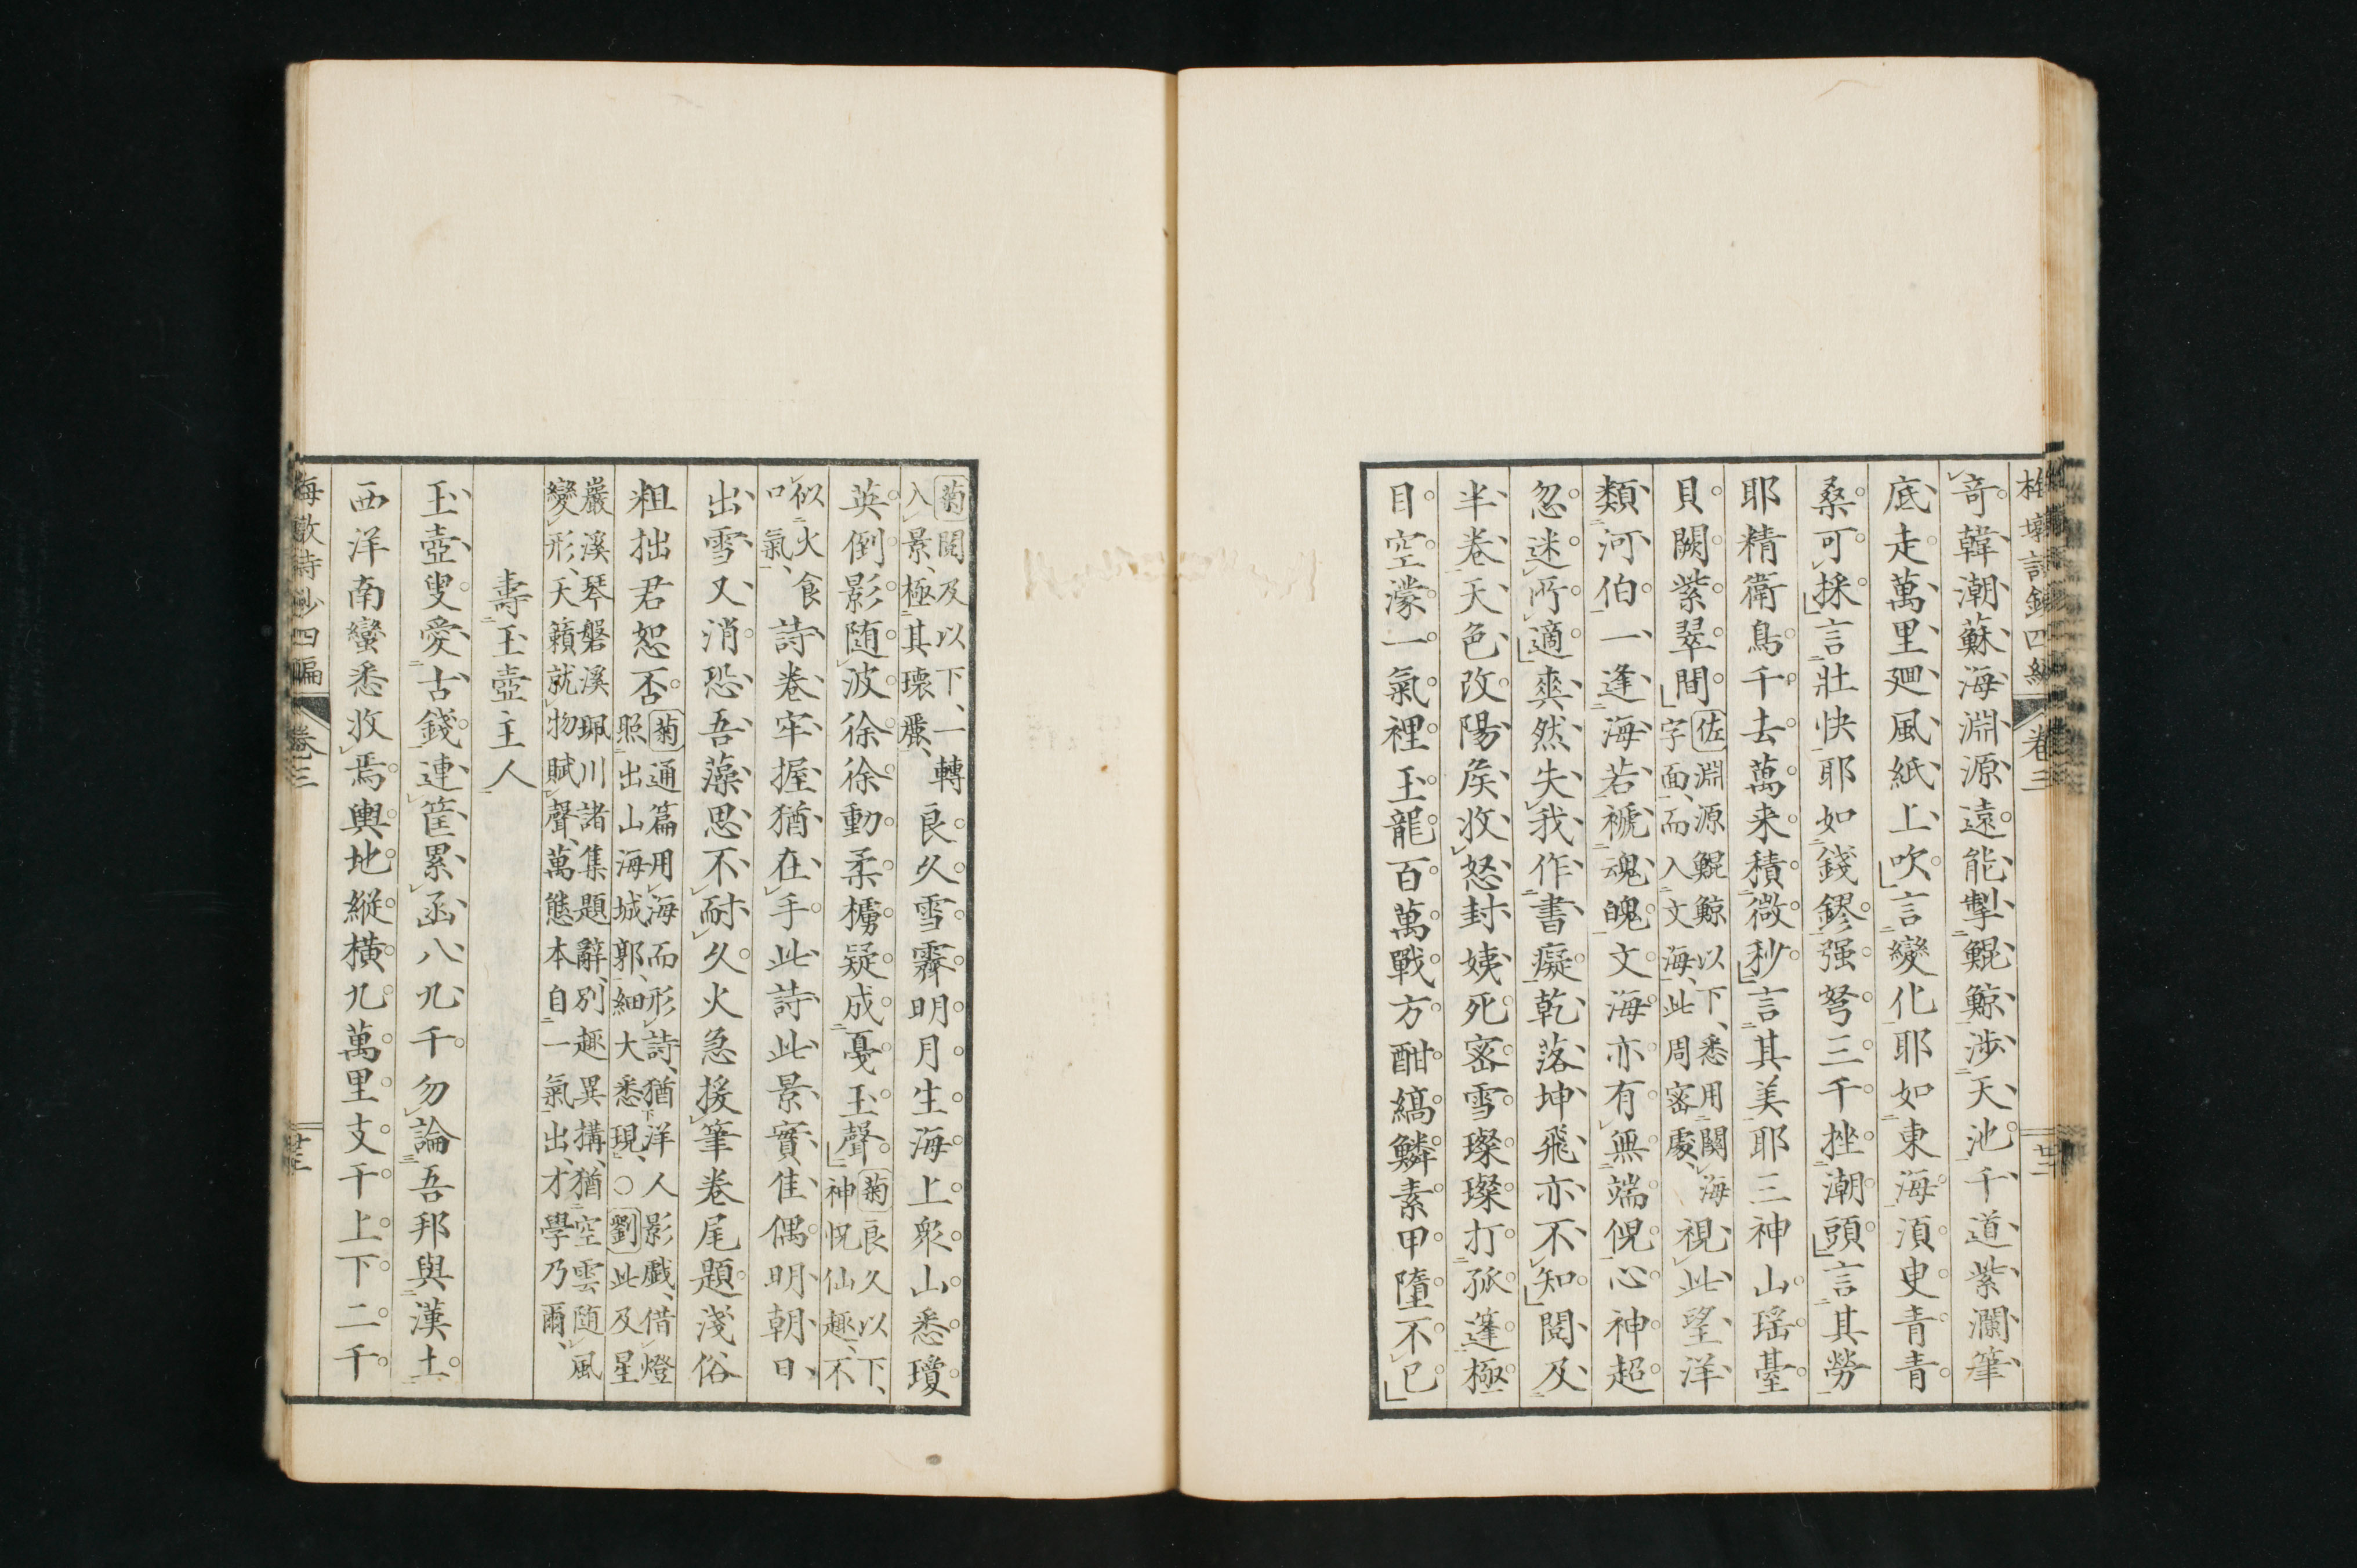 卷三
奇韓潮蘇海淵源遠能掣鯤鯨渉天池千道紫瀾筆
底走萬里廻風紙上吹言變化耶如東海須臾青青
桑可採言壯快耶如錢鏐强弩三千挫潮頭言其勞
耶精衛鳥千去萬来積微秒言其美耶三神山瑶臺
貝闕紫翠間佐淵源鯤鯨以下、悉用關海字面、而入文海、此周密處、視此望洋
類河伯一逢海若褫魂魄文海亦有無端倪心神超
忽迷所適爽然失我作書癡乾落坤飛亦不知閲及
半卷天色改陽矦收怒封姨死密雪璨璨打孤篷極
目空濛一氣裡玉龍百萬戰方酣縞鱗素甲墮不已
菊閲及以下、一轉入景、極其瓌麗、良久雪霽明月生海上衆山悉瓊
英倒影随波徐徐動柔櫓疑成戛玉聲菊良久以下、神怳仙趣、不
似火食口氣、詩卷牢握猶在手此詩此景實隹偶明朝日
出雪又消恐吾藻思不耐久火急援筆卷尾題淺俗
粗拙君恕否菊通篇用海而形詩、猶洋人影戲、借燈照出山海城郭、細大悉現、○劉此及星
巖溪琴磐溪珮川諸集題辭、別趣異搆、猶空雲随風變形、天籟就物賦聲、萬態本自一氣出、才學乃爾、
壽玉壺主人
玉壺叟愛古錢連筐累函八九千勿論吾邦與漢土
西洋南蠻悉收焉輿地縱横九萬里支干上下二千
詩鈔四編 卷三